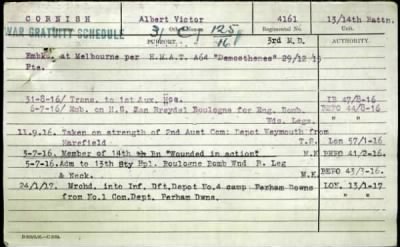 CORNISH Albert Victor 4161 13/14th Battn.
WAR GRATUITY SCHEDULE Other Names. Regimental No.
PURPORT. 3rd M.D. AUTHORITY.
Embkd. at Melbourne per H.M.A.T. A64 "Demosthenes" 29/12/15
Pte.
31-8-16/ Trans. to 1st Aux. Hos. IB 47/8-16
6-7-16/ Emb. on H.S. Jan Breydal Boulogne for Eng. Bomb. BEPO 44/8-16
Wds. Legs.
11.9.16. Taken on strength of 2nd Aust Com: Depot Weymouth from
Harefield T.S. Lon 57/1-16
3-7-16. Member of 14th Bn "Wounded in action" M.K BEPO 41/2-16
5-7-16. Adm to 13th Sty Hpl. Boulogne Bomb Wnd R. Leg
& Neck. M.K BEPO 43/3-16.
24/1/17. Mrchd. into Inf. Dft. Depot No.4 camp Perham Downs LON. 13/1-17
from No.1 Com. Dept. Perham Dwns.